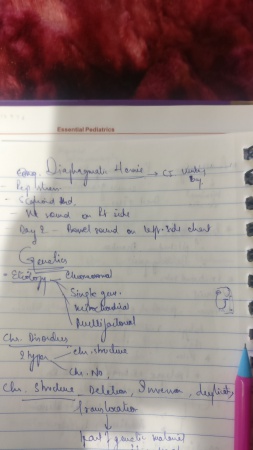 Essential Pediatrics
Cong. Diaphragmatic Hernia → CI
- Resp.
- Scaphoid Abd.
- Ht sound on Rt side
Day 2 - Bowel sound on left side chest
Genetics
- Etiology - Chromosomal
Single gene
Mitochondrial
Multifactorial
Chr. Disorders
2 types - Chr. structure
Chr. No
Chr. Structure Deletion, Inversion,
translocation
part of genetic material